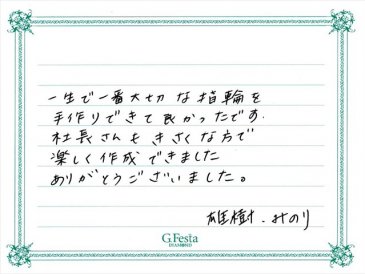 一生で一番大切な指輪を
手作りできて良かったです
社長さんもきさくな方で
楽しく作成できました
ありがとうございました。
雄樹.みのり
G.Festa
DIAMOND